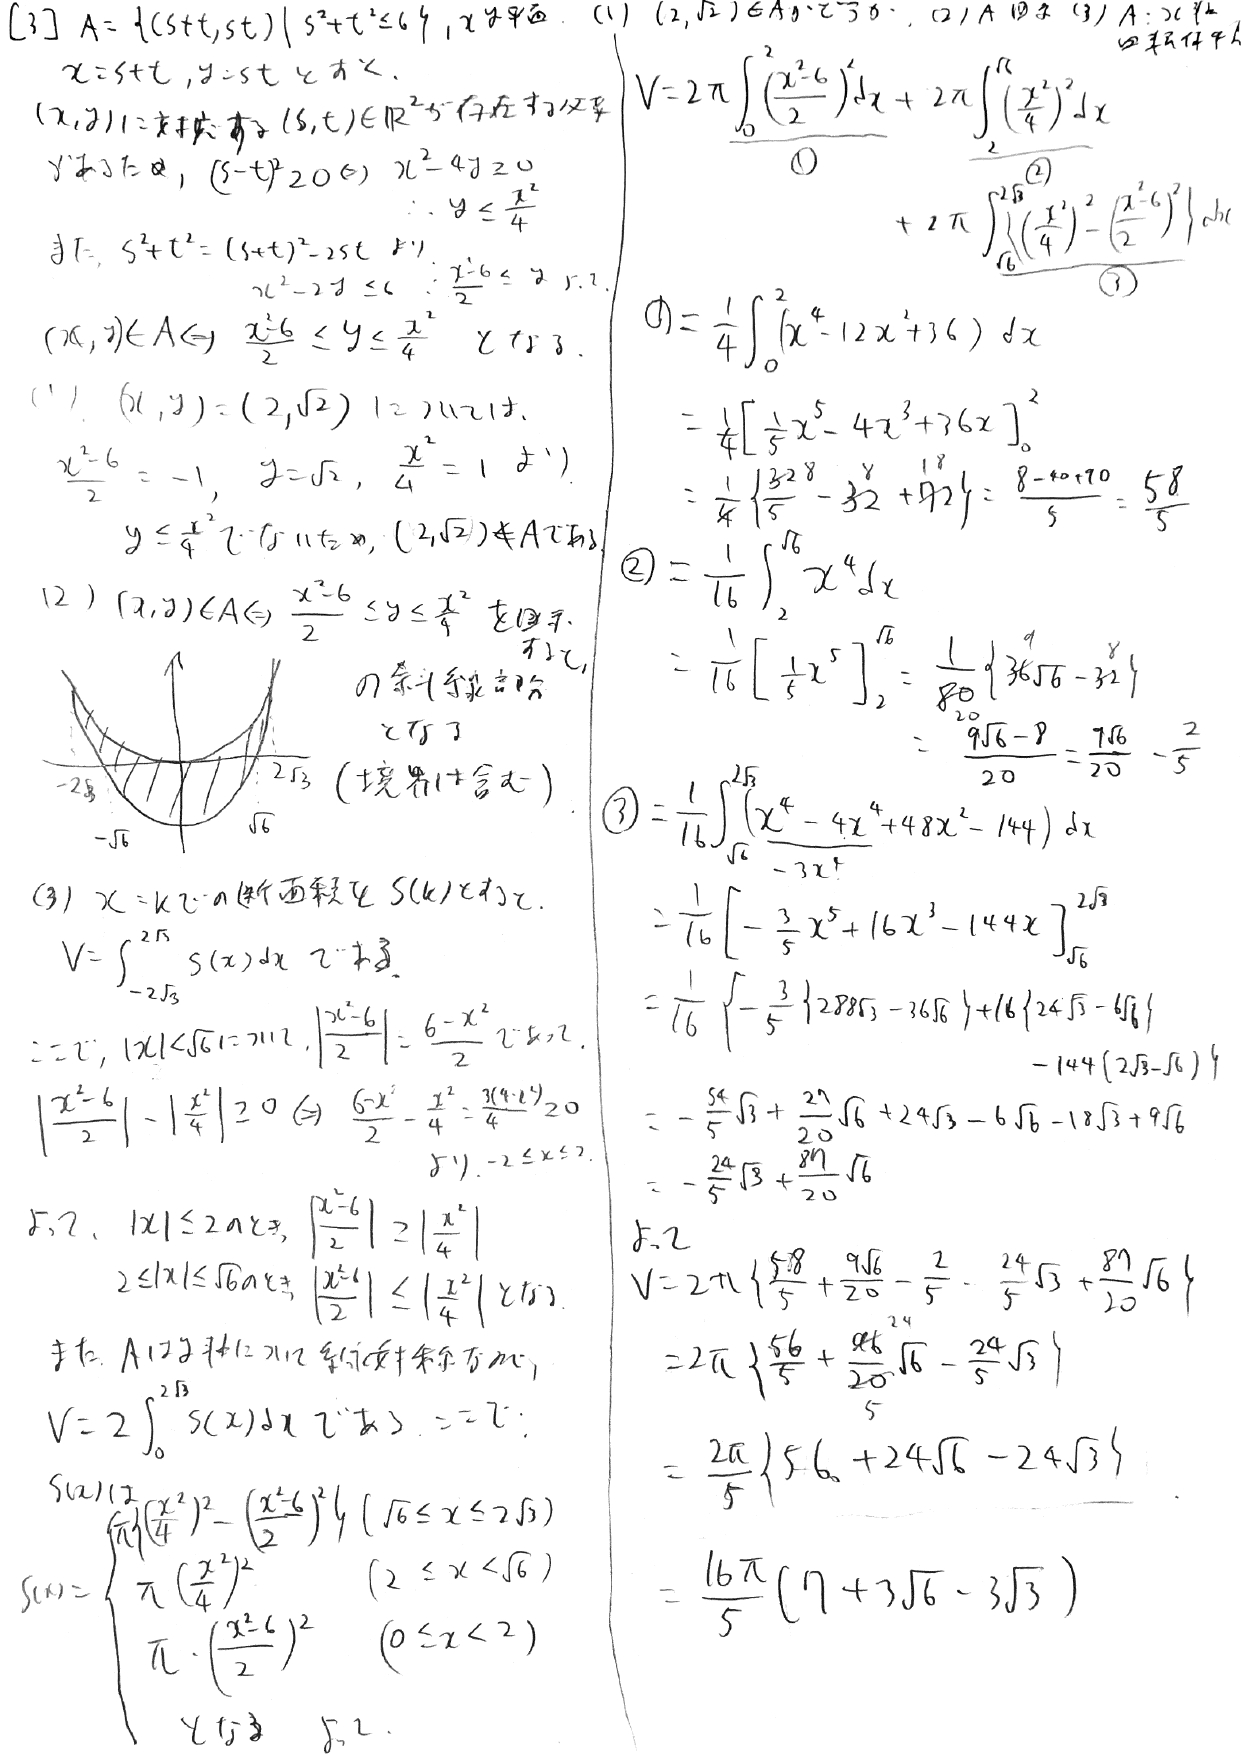 [3] A = {(s+t, st) | s²+t²≤6}, xy平面. (1) (2,√2)∈Aかどうか. (2) A 図示 (3) A: x軸回転体
x=s+t, y=st とおく.
(x,y)に対応する (s,t)∈ℝ²が存在する必要
であるため, (s-t)²≥0 ⇔ x²-4y≥0
∴ y ≤ x²/4
また, s²+t² = (s+t)²-2st より
x²-2y≤6 ∴ (x²-6)/2 ≤ y よって.
(x,y)∈A ⇔ (x²-6)/2 ≤ y ≤ x²/4 となる.
(1) (x,y)=(2,√2) については.
(x²-6)/2 = -1, y=√2, x²/4 = 1 より
y ≤ x²/4 でないため, (2,√2)∉Aである
(2) (x,y)∈A ⇔ (x²-6)/2 ≤ y ≤ x²/4 を図示
すると,
の斜線部分
となる
(境界は含む)
-2√3 -√6 √6 2√3
(3) x=kでの断面積を S(k)とすると.
V = ∫_{-2√3}^{2√3} S(x)dx である.
ここで, |x|<√6について, |(x²-6)/2| = (6-x²)/2 であって.
|(x²-6)/2| - |x²/4| ≥ 0 ⇔ (6-x²)/2 - x²/4 = 3(4-x²)/4 ≥0
より. -2≤x≤2.
よって, |x|≤2のとき, |(x²-6)/2| ≥ |x²/4|
2≤|x|≤√6のとき |(x²-6)/2| ≤ |x²/4| となる.
また Aはy軸について
V = 2∫_0^{2√3} S(x)dx である ここで,
S(x)は
S(x) = { π{(x²/4)² - ((x²-6)/2)²} (√6≤x≤2√3)
π(x²/4)² (2≤x<√6)
π·((x²-6)/2)² (0≤x<2)
となる よって.
V = 2π∫_0^2 ((x²-6)/2)² dx + 2π∫_2^{√6} (x²/4)² dx
① ②
+ 2π∫_{√6}^{2√3} {(x²/4)² - ((x²-6)/2)²} dx
③
① = 1/4 ∫_0^2 (x⁴-12x²+36) dx
= 1/4 [1/5 x⁵ - 4x³+36x]_0^2
= 1/4 {32/5 - 32 + 72} = (8-40+90)/5 = 58/5
② = 1/16 ∫_2^{√6} x⁴dx
= 1/16 [1/5 x⁵]_2^{√6} = 1/80 {36√6 - 32}
= (9√6-8)/20 = 9√6/20 - 2/5
③ = 1/16 ∫_{√6}^{2√3} (x⁴ - 4x⁴+48x²-144) dx
-3x⁴
= 1/16 [-3/5 x⁵+16x³-144x]_{√6}^{2√3}
= 1/16 {-3/5 {288√3-36√6}+16{24√3-6√6}
-144(2√3-√6)}
= -54/5 √3 + 27/20 √6 + 24√3 - 6√6 - 18√3 + 9√6
= -24/5 √3 + 87/20 √6
よって
V = 2π{58/5 + 9√6/20 - 2/5 - 24/5 √3 + 87/20 √6}
= 2π{56/5 + 96/20 √6 - 24/5 √3}
= 2π/5 {56 + 24√6 - 24√3}
= 16π/5 (7 + 3√6 - 3√3)